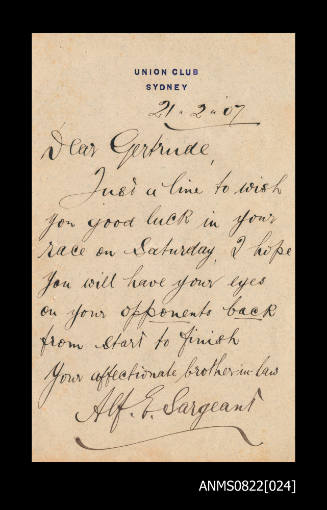 UNION CLUB
SYDNEY
21-2-07
Dear Gertrude,
Just a line to wish
you good luck in your
race on Saturday. I hope
you will have your eyes
on your opponents back
from start to finish
Your affectionate brother-in-law
Alf. E. Sargeant
ANMS0822[024]